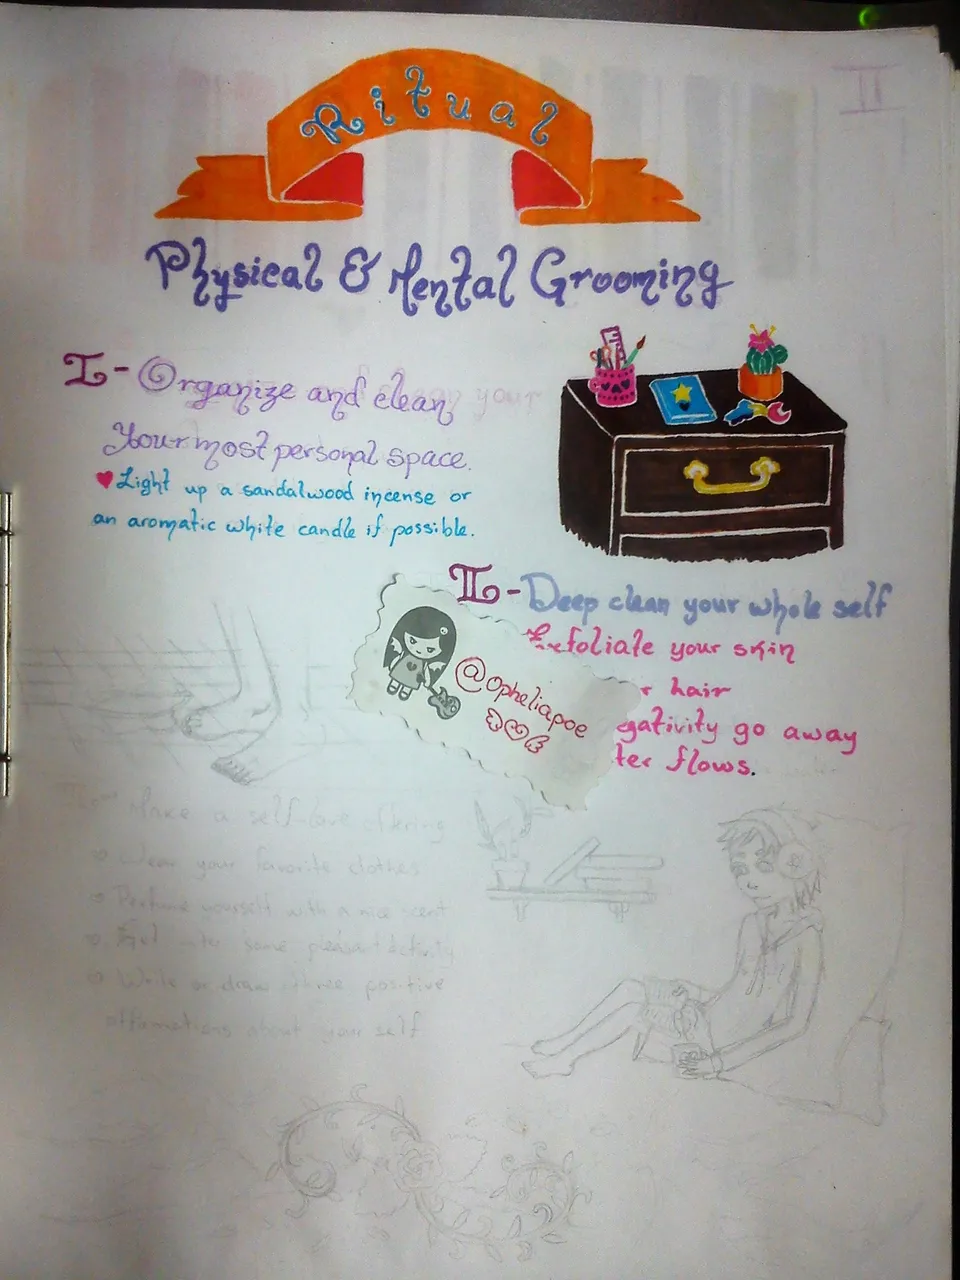 II
Ritual
Physical & Mental Grooming
I - Organize and clean
your
Your most personal space.
Light up a sandalwood incense or
an aromatic white candle if possible.
II - Deep clean your whole self
Exfoliate your skin
r hair
gativity go away
ter flows.
@Opheliapoe
Make a self-love offering
Wear your favorite clothes
Perfume yourself with a nice scent
some pleasant activity
Write or draw three positive
affirmations about your self